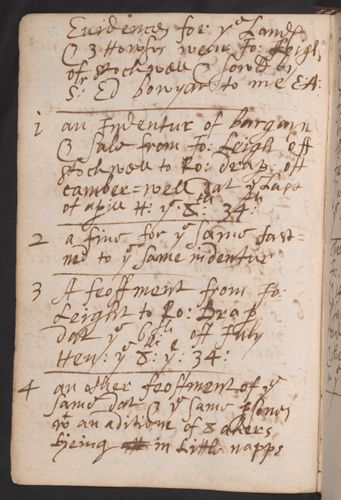 Euidences for yᵉ Lands
& 3 Howses wᶜʰ were Jo: Leigh
of Stockwell & sowld by
Sʳ Ed bowyar to me EA:
1 an Indentur of bargayn
& sale from Jo: Leigh off
Stockwell to Ro: drap: off
camber=well dat yᵉ last
of aprill H: yᵉ 8:ᵗʰ 34:ᵗʰ
2 a fine for yᵉ same fast-
ned to yᵉ same indentur
3 A feoffment from Jo:
Leight to Ro: Drap
dat yᵉ 6ᵗʰ off July
Hen: yᵉ 8: yᵉ 34:
4 an other feoffment of yᵉ
same dat & yᵉ same psones
wᵗ an aditione of 8 akers
Lyeing in Little napps